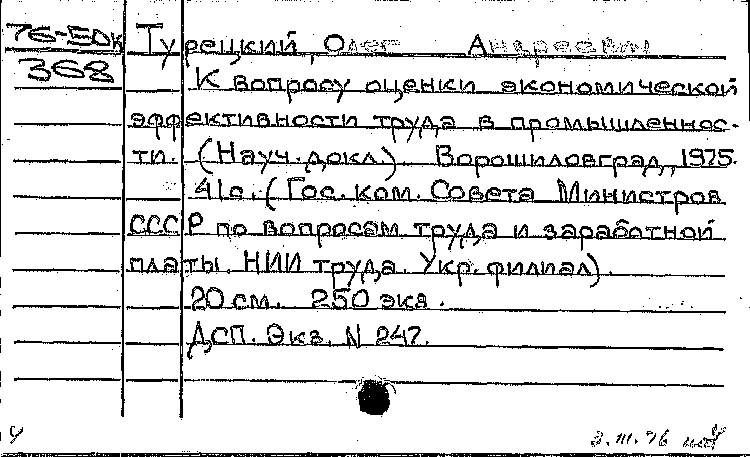 76-50к Турецкий, Олег Андреевич
368
К вопросу оценки экономической
эффективности труда в промышленнос-
ти. (Науч. докл.). Ворошиловград, 1975.
41с. (Гос. ком. Совета Министров
СССР по вопросам труда и заработной
платы. НИИ труда. Укр. филиал).
20 см. 250 экз.
ДСП. Экз. N 247.
3.III.76